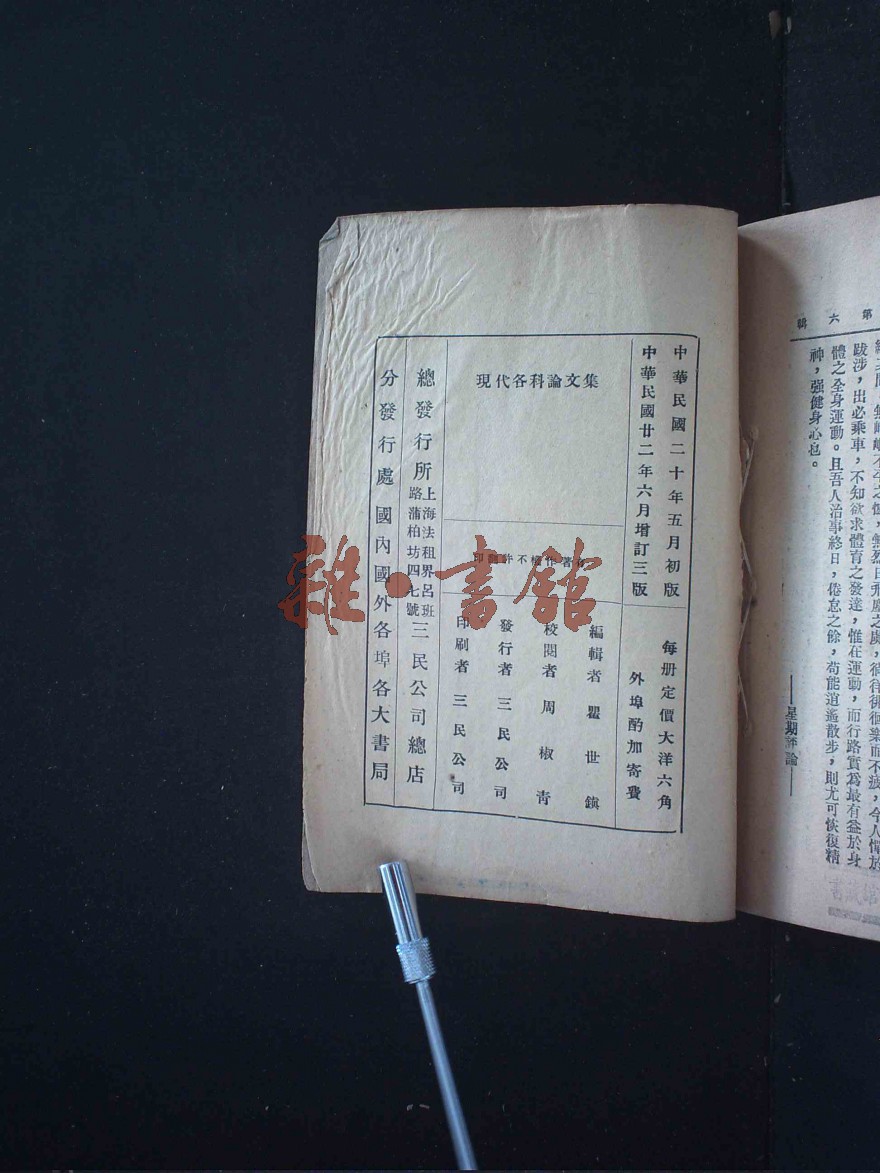 第六輯
跋涉，出必乘車，不知欲求體育之發達，惟在運動，而行路實爲最有益於身
體之全身運動。且吾人治事終日，倦怠之餘，苟能逍遙散步，則尤可恢復精
神，强健身心也。
——星期評論——
中華民國二十年五月初版
中華民國廿二年六月增訂三版
每册定價大洋六角
外埠酌加寄費
現代各科論文集
有著作權不許翻印
編輯者瞿世鎮
校閱者周椒青
發行者三民公司
印刷者三民公司
總發行所上海法租界呂班路蒲柏坊四七號三民公司總店
分發行處國內國外各埠各大書局
雜·書館